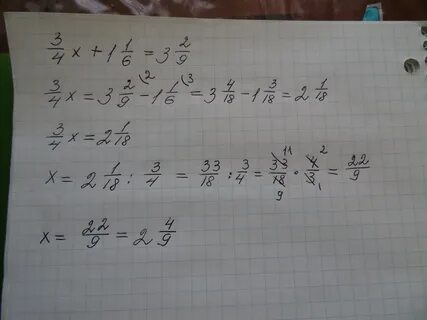 3/4 x + 1 1/6 = 3 2/9
3/4 x = 3 2/9 (2 - 1 1/6 (3 = 3 4/18 - 1 3/18 = 2 1/18
3/4 x = 2 1/18
x = 2 1/18 : 3/4 = 33/18 : 3/4 = 33 11/18 9 · 4 2/3 1 = 22/9
x = 22/9 = 2 4/9